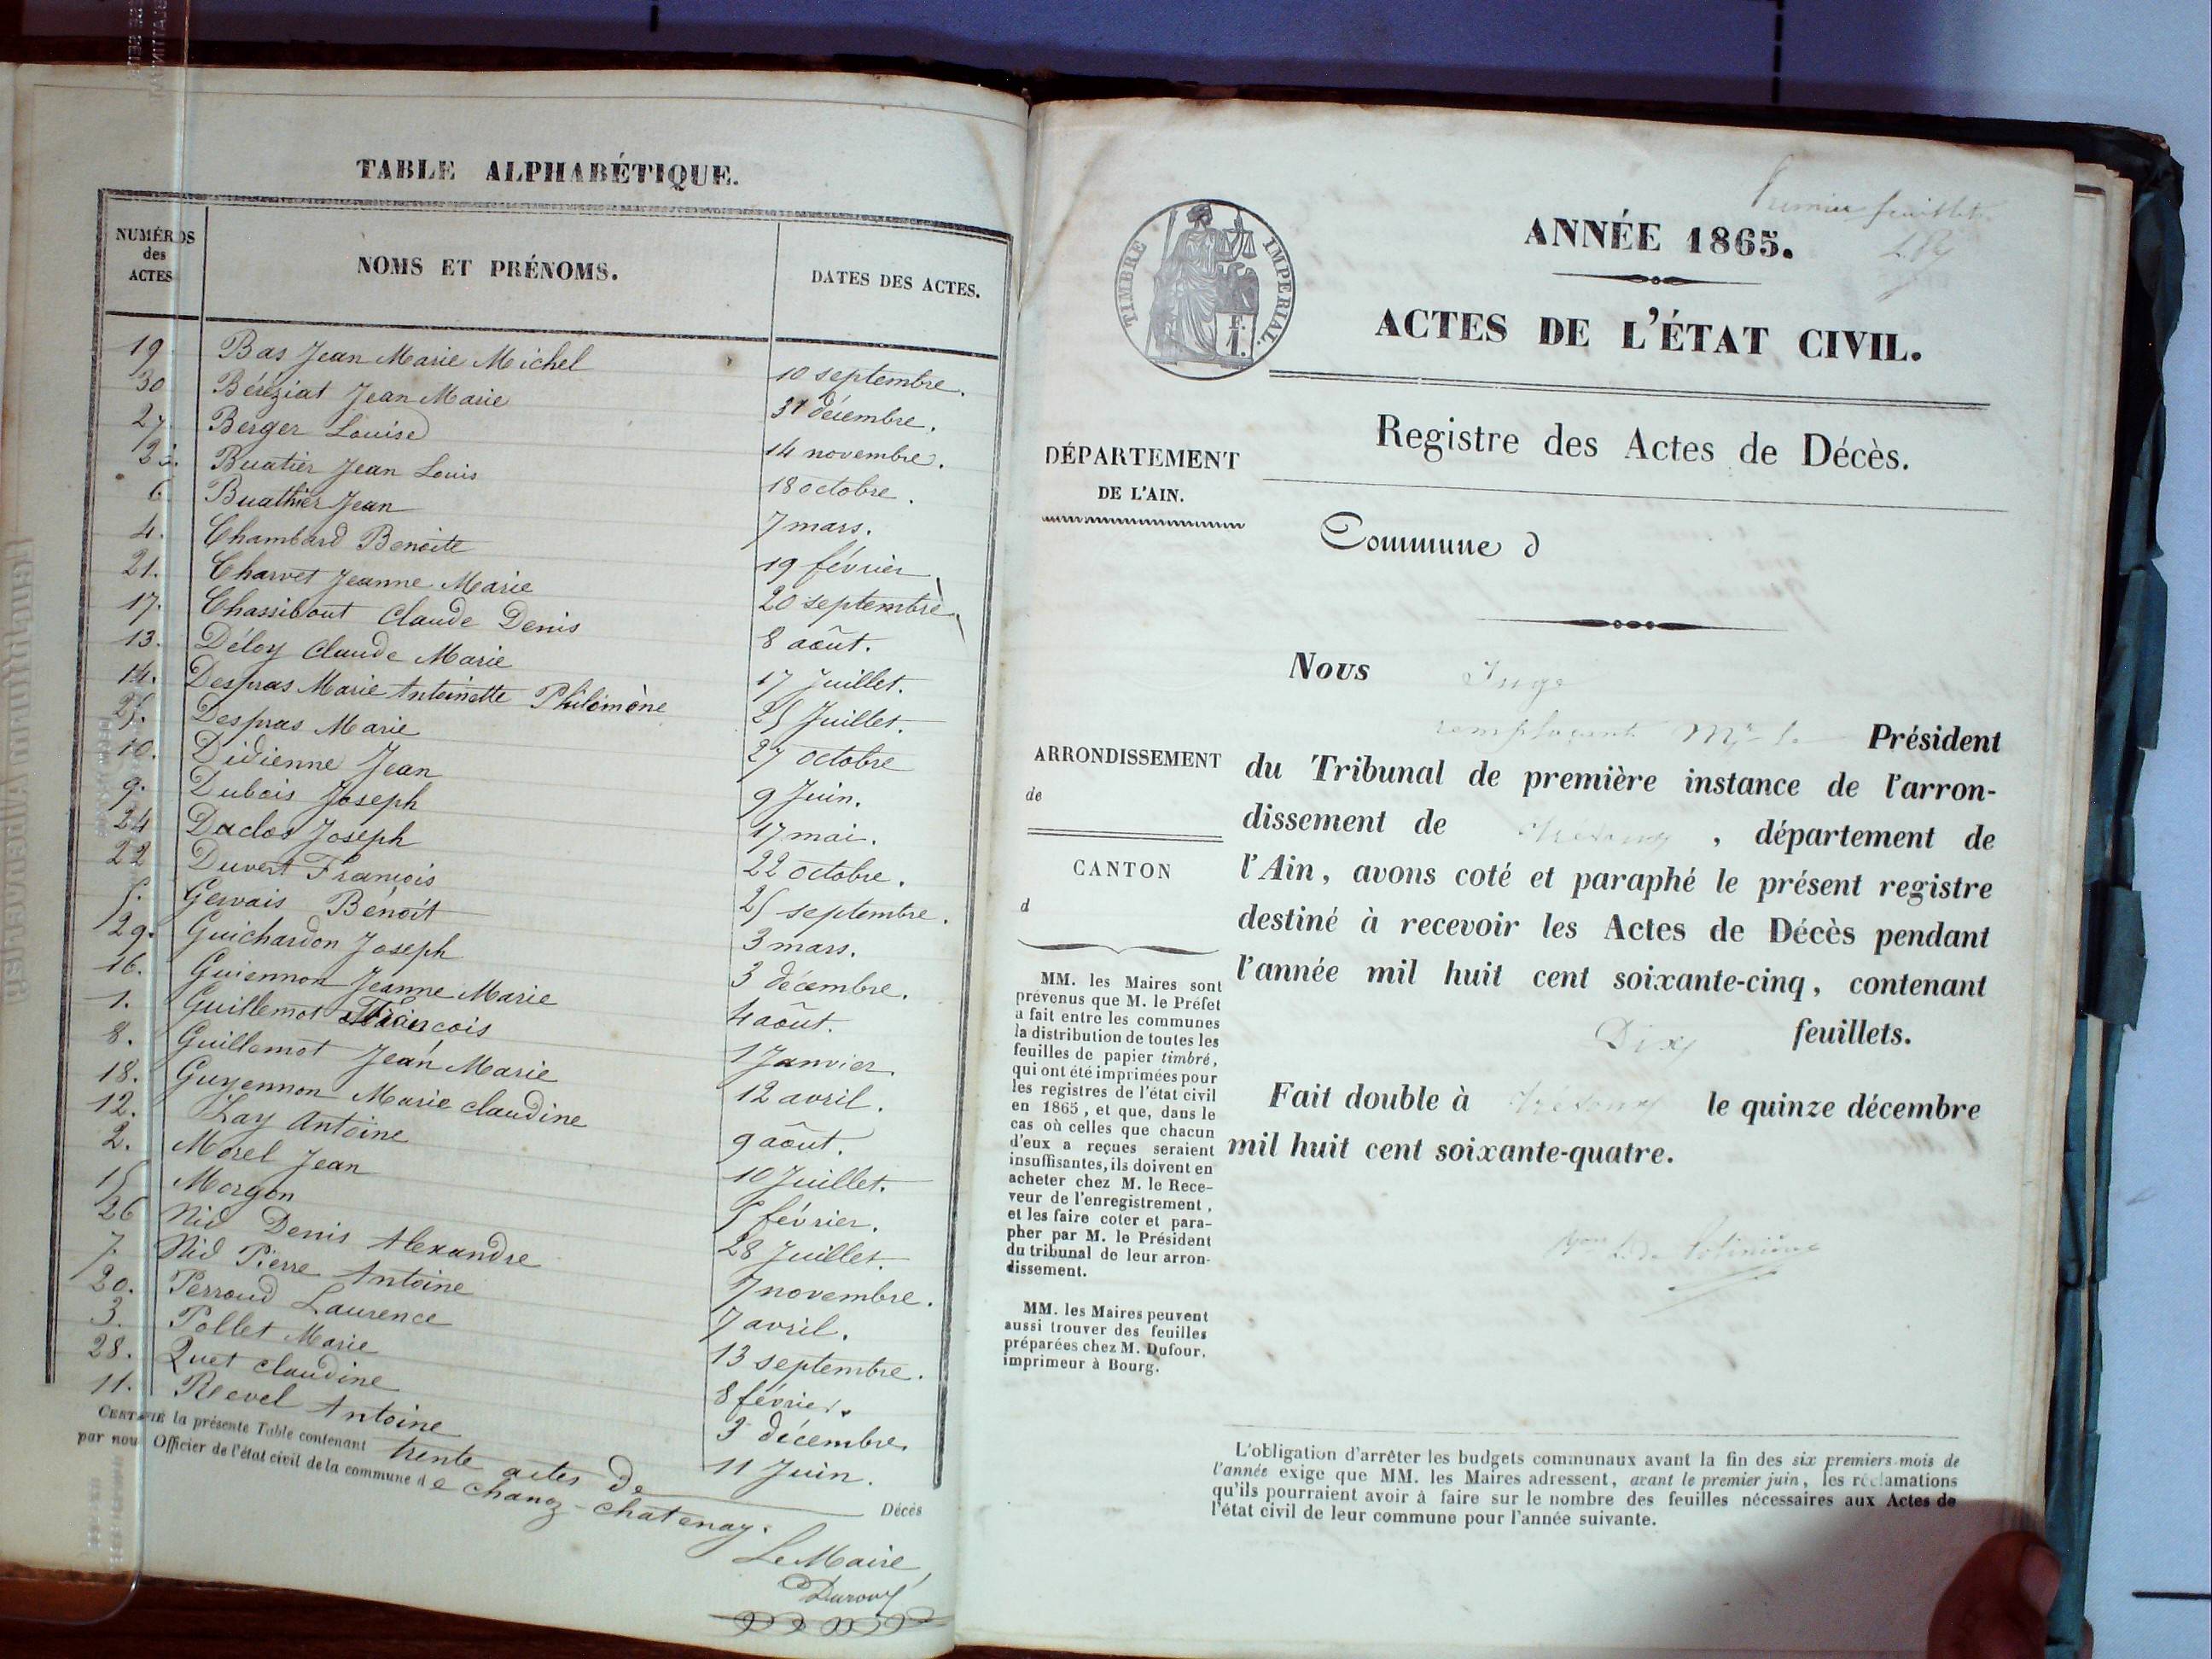 TABLE ALPHABÉTIQUE.
NUMÉROS des ACTES
NOMS ET PRÉNOMS.
DATES DES ACTES.
19 Bas Jean Marie Michel 10 septembre.
30 Béréziat Jean Marie 31 décembre.
27 Berger Louise 14 novembre.
Buatier Jean Louis 18 octobre.
6 Buathier Jean 7 mars.
4. Chambard Benoite 19 février
21. Charvet Jeanne Marie 20 septembre
17. Chassibout Claude Denis 8 août.
13. Déloy Claude Marie 17 Juillet.
14. Despras Marie Antoinette Philomène 25 Juillet.
25. Despras Marie 27 octobre
10. Didienne Jean 9 Juin.
9. Dubois Joseph 17 mai.
24 Duclos Joseph 22 octobre.
22 Duvert François 25 septembre.
5. Gervais Benoît 3 mars.
29. Guichardon Joseph 3 décembre.
16. Guiennon Jeanne Marie 4 août.
1. Guillemot François 1 Janvier.
8. Guillemot Jean Marie 12 avril.
18. Guyennon Marie claudine 9 août.
12. Lay Antoine 10 Juillet.
2. Morel Jean 5 février.
15 Morgon 28 Juillet.
26 Nid Denis Alexandre 7 novembre.
7. Nid Pierre Antoine 7 avril.
20. Perroud Laurence 13 septembre.
3. Pollet Marie 8 février.
28. Quet claudine 3 décembre.
11. Revel Antoine 11 Juin.
CERTIFIÉ la présente Table contenant trente actes de Décès
par nous Officier de l'état civil de la commune de Chanoz-Chatenay.
Le Maire,
TIMBRE IMPERIAL.
F. 1.
Premier feuillet
ANNÉE 1865.
ACTES DE L'ÉTAT CIVIL.
Registre des Actes de Décès.
DÉPARTEMENT
DE L'AIN.
Commune d
Nous Juge
remplaçant Mr le Président
ARRONDISSEMENT
de
CANTON
d
du Tribunal de première instance de l'arron-
dissement de Trévoux, département de
l'Ain, avons coté et paraphé le présent registre
destiné à recevoir les Actes de Décès pendant
l'année mil huit cent soixante-cinq, contenant
Dix feuillets.
Fait double à Trévoux le quinze décembre
mil huit cent soixante-quatre.
MM. les Maires sont
prévenus que M. le Préfet
a fait entre les communes
la distribution de toutes les
feuilles de papier timbré,
qui ont été imprimées pour
les registres de l'état civil
en 1865, et que, dans le
cas où celles que chacun
d'eux a reçues seraient
insuffisantes, ils doivent en
acheter chez M. le Rece-
veur de l'enregistrement,
et les faire coter et para-
pher par M. le Président
du tribunal de leur arron-
dissement.
MM. les Maires peuvent
aussi trouver des feuilles
préparées chez M. Dufour,
imprimeur à Bourg.
L'obligation d'arrêter les budgets communaux avant la fin des six premiers mois de
l'année exige que MM. les Maires adressent, avant le premier juin, les réclamations
qu'ils pourraient avoir à faire sur le nombre des feuilles nécessaires aux Actes de
l'état civil de leur commune pour l'année suivante.